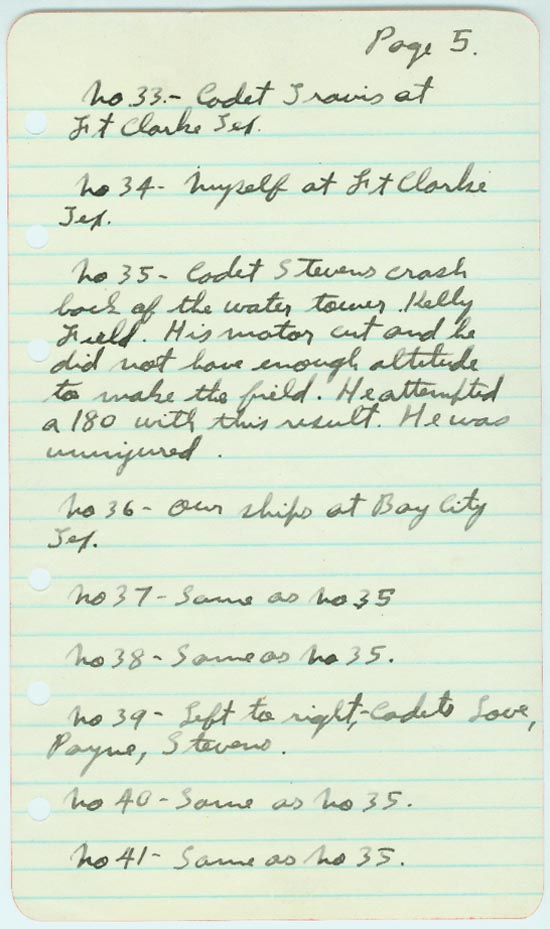 Page 5.
No 33.- Cadet Travis at
Ft Clarke Tex.
No 34- Myself at Ft Clarke
Tex.
No 35- Cadet Stevens crash
back of the water tower Kelly
Field. His motor cut and he
did not have enough altitude
to make the field. He attempted
a 180 with this result. He was
uninjured.
No 36- Our ships at Bay City
Tex.
No 37- Same as No 35
No 38- Same as No 35.
No 39- Left to right,-Cadets Love,
Payne, Stevens.
No 40- Same as No 35.
No 41- Same as No 35.